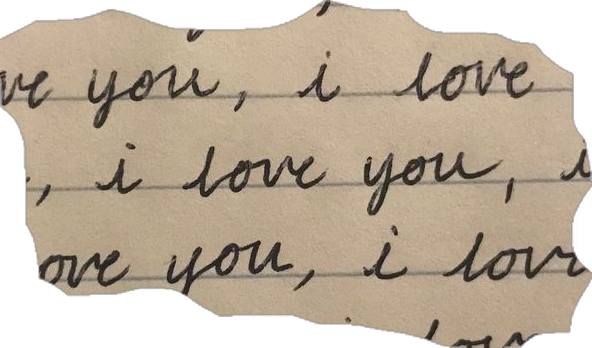 ve you, i love
, i love you, i
ove you, i lov
lov